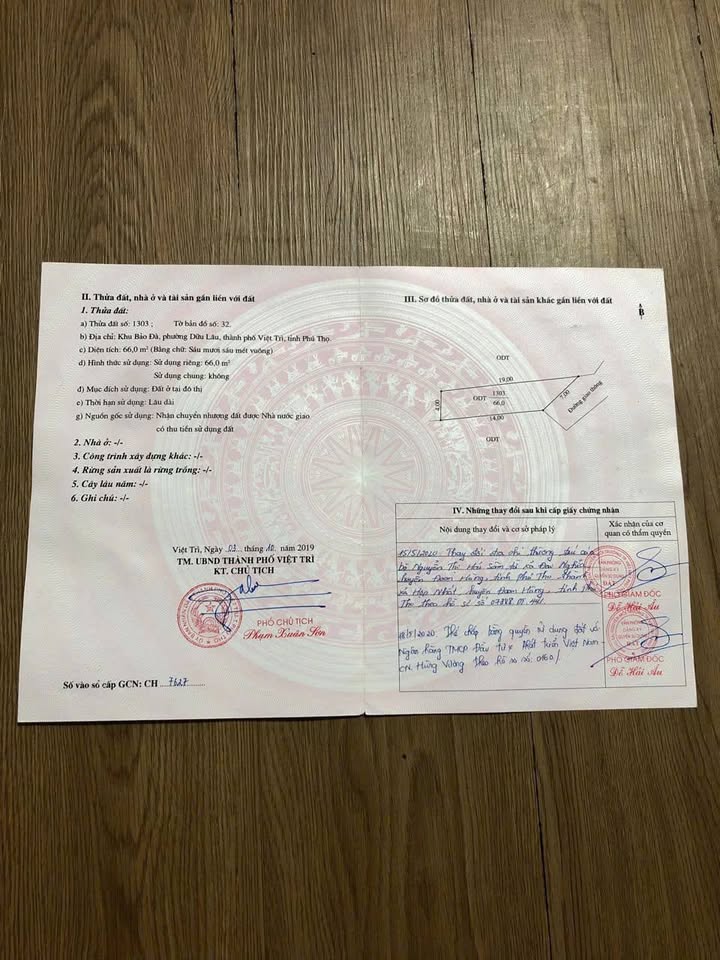 II. Thửa đất, nhà ở và tài sản gắn liền với đất
1. Thửa đất:
a) Thửa đất số: 1303 ; Tờ bản đồ số: 32.
b) Địa chỉ: Khu Bảo Đà, phường Dữu Lâu, thành phố Việt Trì, tỉnh Phú Thọ.
c) Diện tích: 66,0 m² (Bằng chữ: Sáu mươi sáu mét vuông)
d) Hình thức sử dụng: Sử dụng riêng: 66,0 m²
Sử dụng chung: không
đ) Mục đích sử dụng: Đất ở tại đô thị
e) Thời hạn sử dụng: Lâu dài
g) Nguồn gốc sử dụng: Nhận chuyển nhượng đất được Nhà nước giao
có thu tiền sử dụng đất
2. Nhà ở: -/-
3. Công trình xây dựng khác: -/-
4. Rừng sản xuất là rừng trồng: -/-
5. Cây lâu năm: -/-
6. Ghi chú: -/-
Việt Trì, Ngày 03 tháng 10 năm 2019
TM. UBND THÀNH PHỐ VIỆT TRÌ
KT. CHỦ TỊCH
PHÓ CHỦ TỊCH
Phạm Xuân Sơn
Số vào sổ cấp GCN: CH 7627
III. Sơ đồ thửa đất, nhà ở và tài sản khác gắn liền với đất
B
ODT
19,00
4,00
ODT
1303
66,0
7,00
14,00
Đường giao thông
ODT
IV. Những thay đổi sau khi cấp giấy chứng nhận
Nội dung thay đổi và cơ sở pháp lý
Xác nhận của cơ quan có thẩm quyền
15/5/2020 Thay đổi địa chỉ thường trú của
bà Nguyễn Thị Hoài tại xã
huyện Đoan Hùng, tỉnh Phú Thọ thành
xã Hợp Nhất huyện Đoan Hùng tỉnh Phú
Thọ theo hồ sơ số
PHÓ GIÁM ĐỐC
Đỗ Hải Âu
/5/2020 Thế chấp bằng quyền sử dụng đất với
Ngân hàng TMCP Đầu tư và Phát triển Việt Nam
CN. Hùng Vương theo hồ sơ số
PHÓ GIÁM ĐỐC
Đỗ Hải Âu